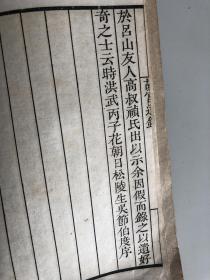 於呂山友人高叔禎氏出以示余因假而錄之以遺好
奇之士云時洪武丙子花朝日松陵生吳節伯度序